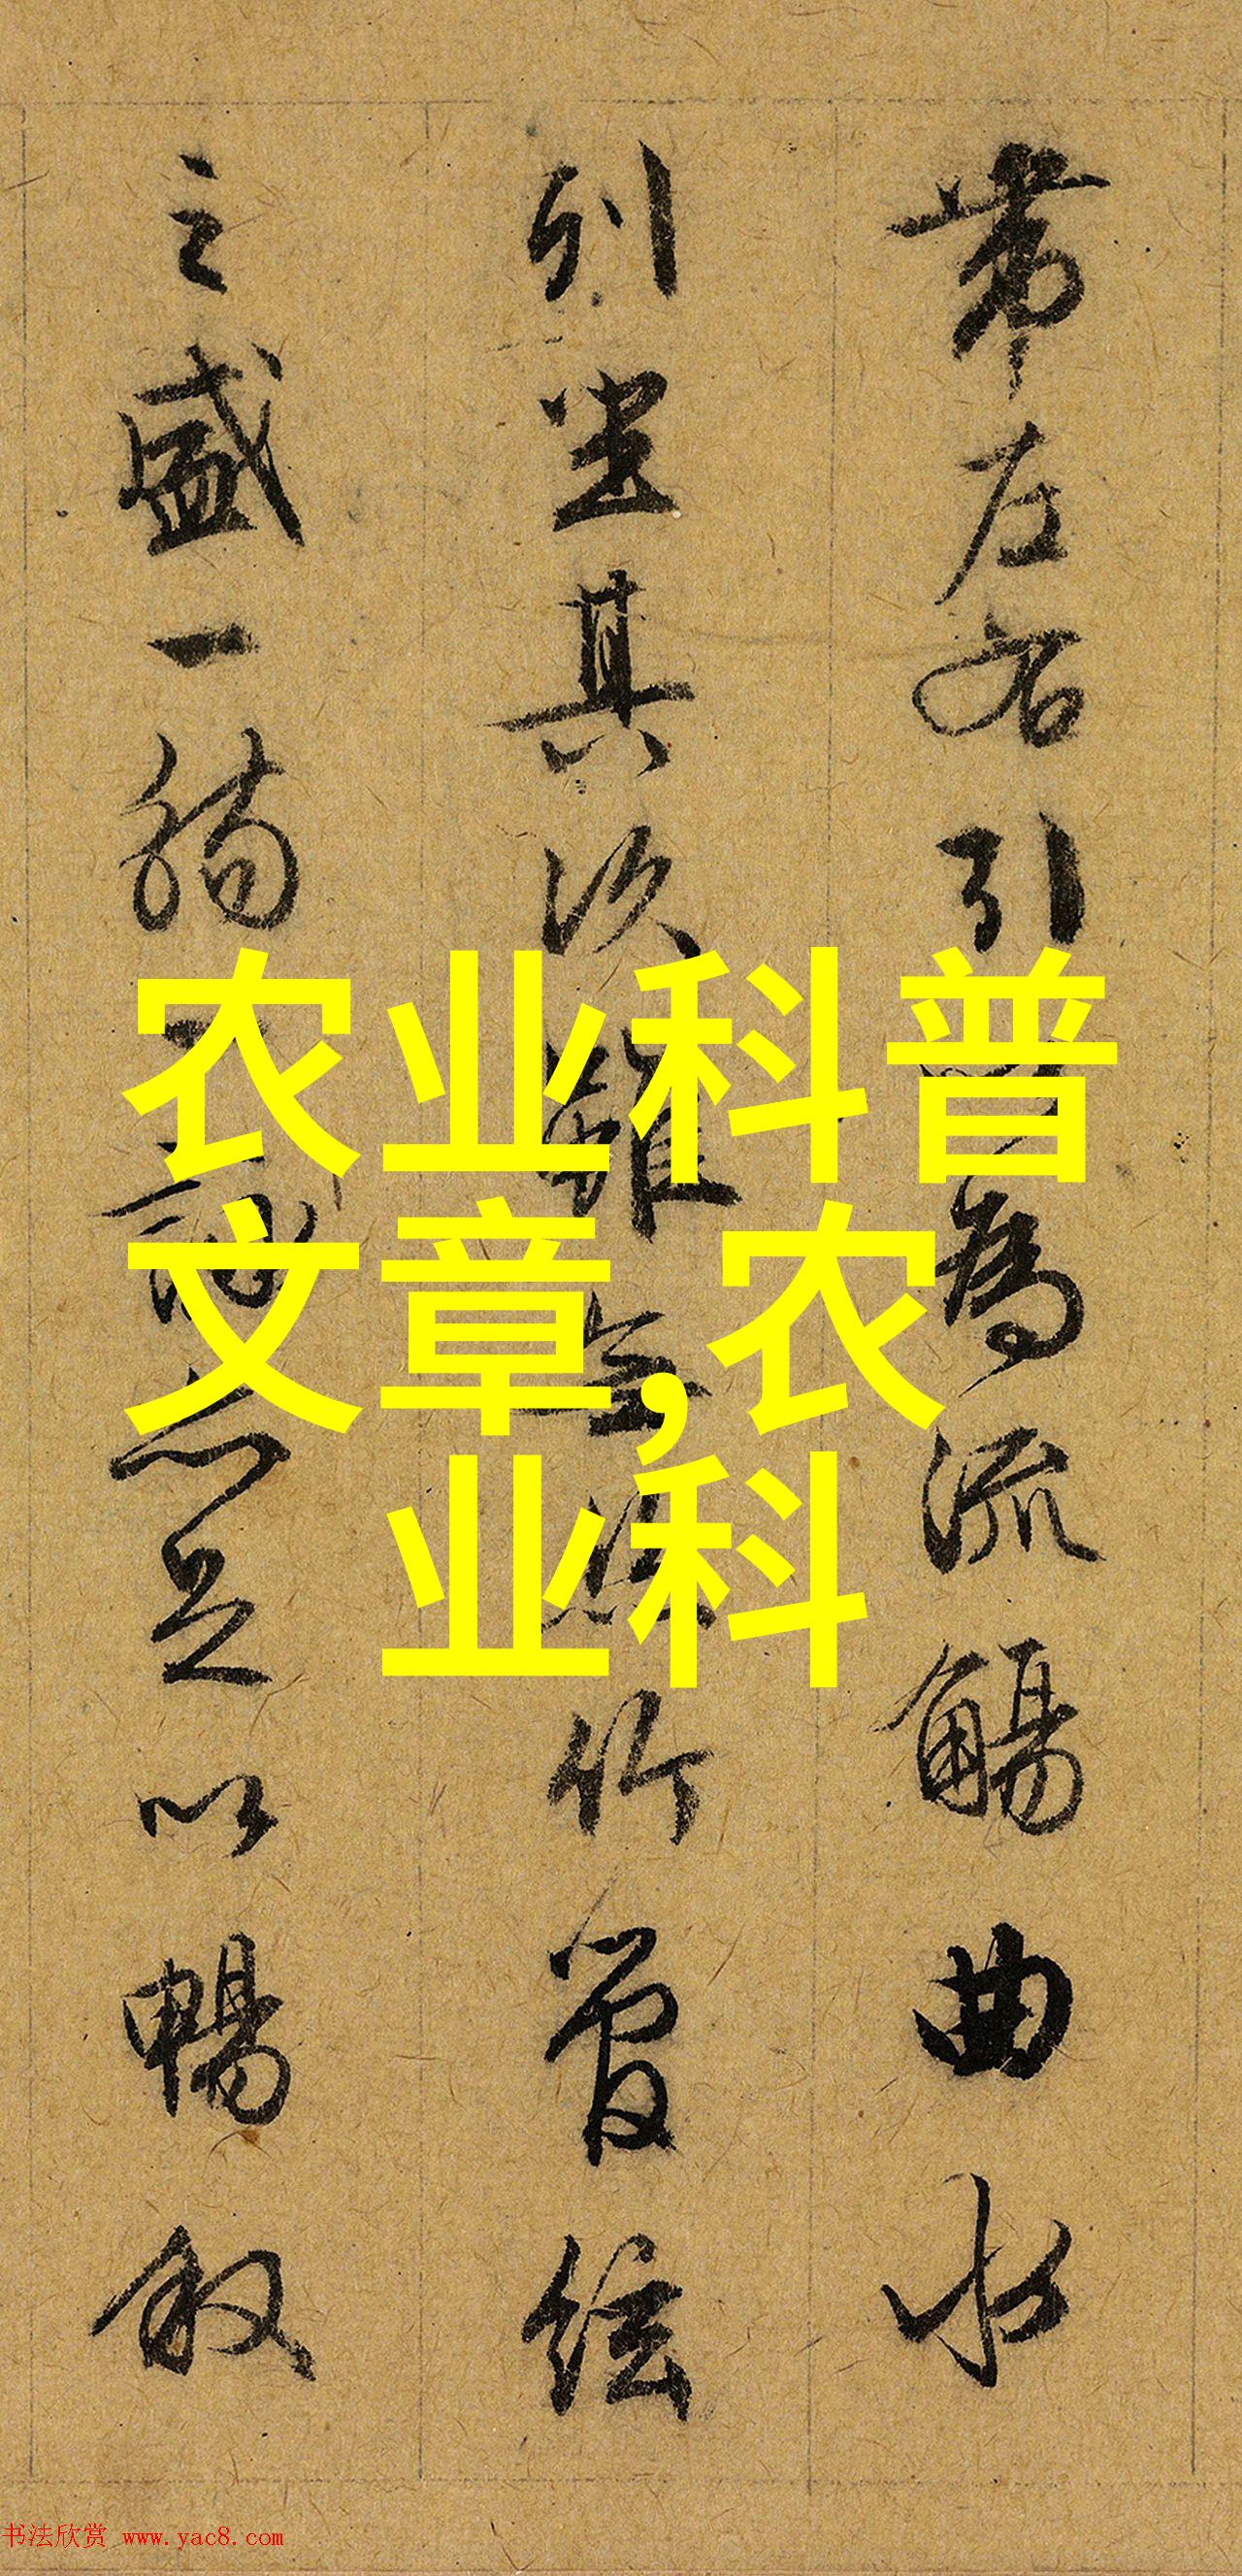 帶左右引以為流觴曲水
列坐其次雖無絲竹管絃
之盛一觴一詠亦足以暢敘
农业科普
文章,农
业科
书法欣赏 www.yac8.com